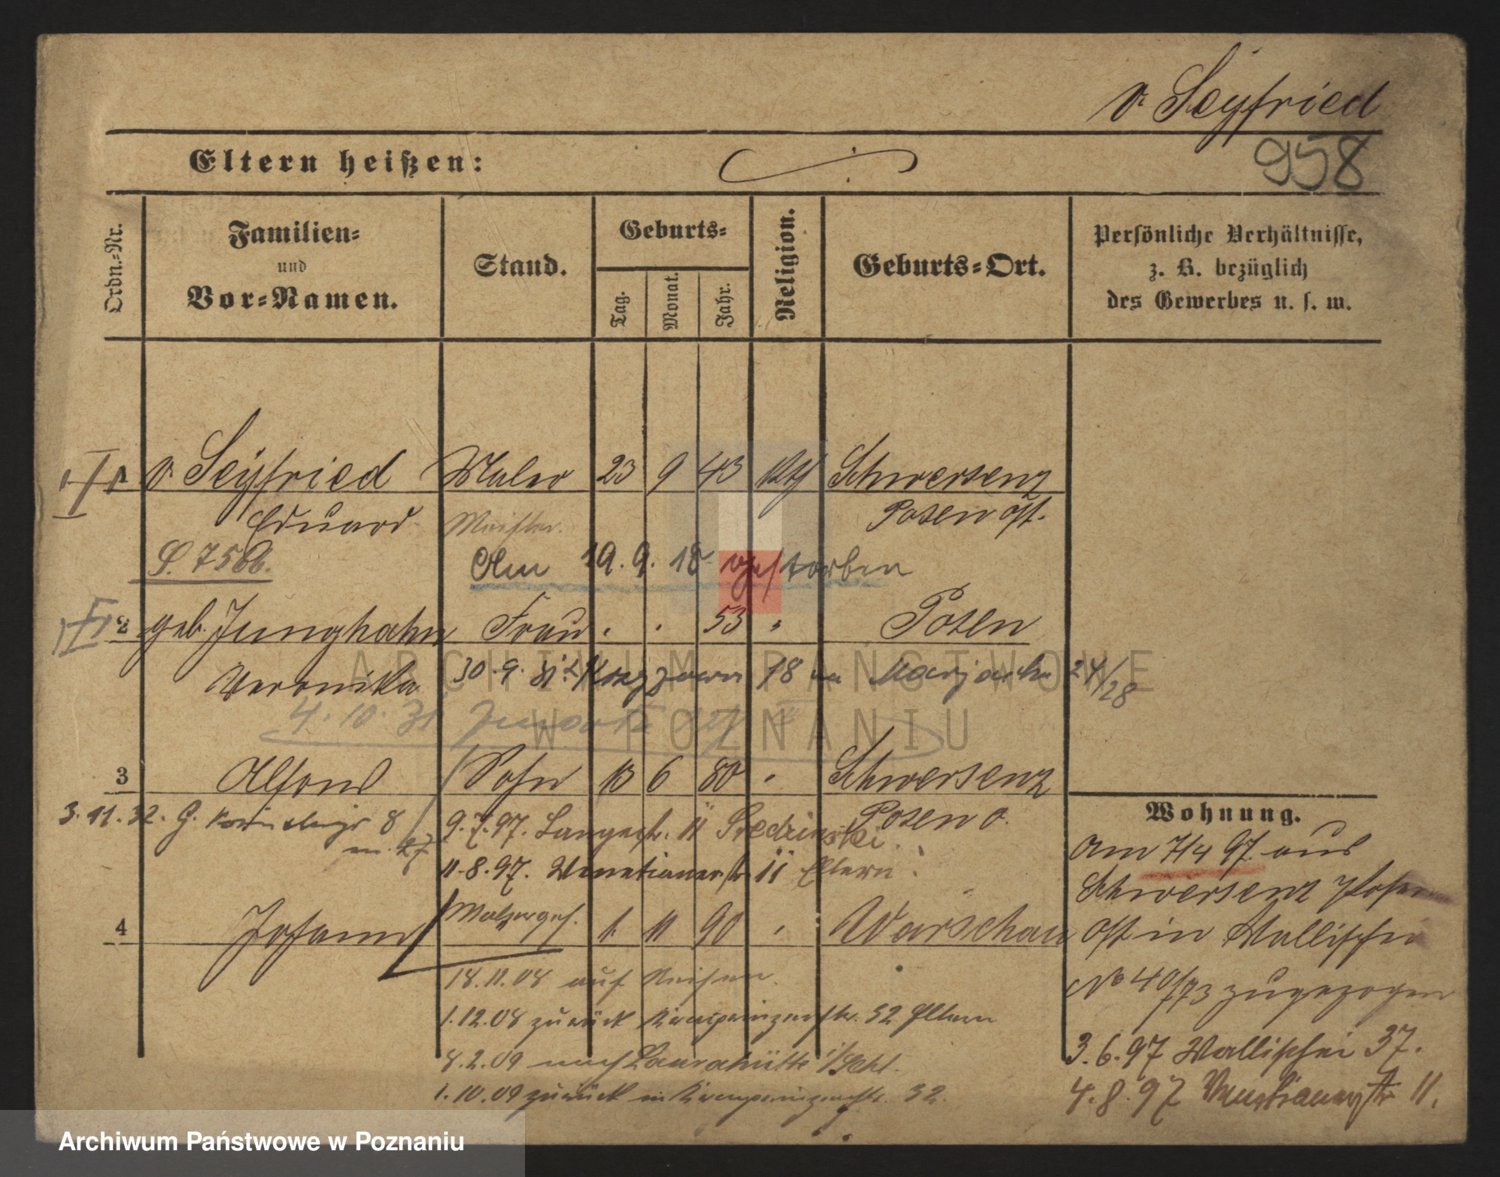 v. Seyfried
958
Eltern heißen:
Ordn.-Nr.
Familien-
und
Vor-Namen.
Stand.
Geburts-
Tag.
Monat.
Jahr.
Religion.
Geburts-Ort.
Persönliche Verhältnisse,
z. B. bezüglich
des Gewerbes u. s. w.
I
v. Seyfried Maler 23 9 43 kth Schwersenz
Eduard Meister. Posen Ost.
Am 19. 9. 18 gestorben
2 geb. Junghahn Frau . . 53 " Posen
Veronika 30. 9. 18 24/28
4. 10. 31
3 Alfons Sohn 13 6 80 " Schwersenz
Posen O.
3. 11. 32. G. 8
9. 7. 97. Langestr. 11
11. 8. 97. Venetianerstr 11 Eltern
4 Johann 1 11 90 " Warschau
18. 11. 08 auf Reisen.
1. 12. 08 zurück Kronprinzenstr. 52 Eltern
8. 2. 09 nach Laurahütte
1. 10. 09 zurück in Kronprinzenstr. 52.
Wohnung.
Am 7/4 97. aus
Schwersenz Posen
Ost in Wallischei
No 40/73 zugezogen
3. 6. 97 Wallischei 37.
4. 8. 97 Venetianerstr 11.
ARCHIWUM PAŃSTWOWE
W POZNANIU
Archiwum Państwowe w Poznaniu